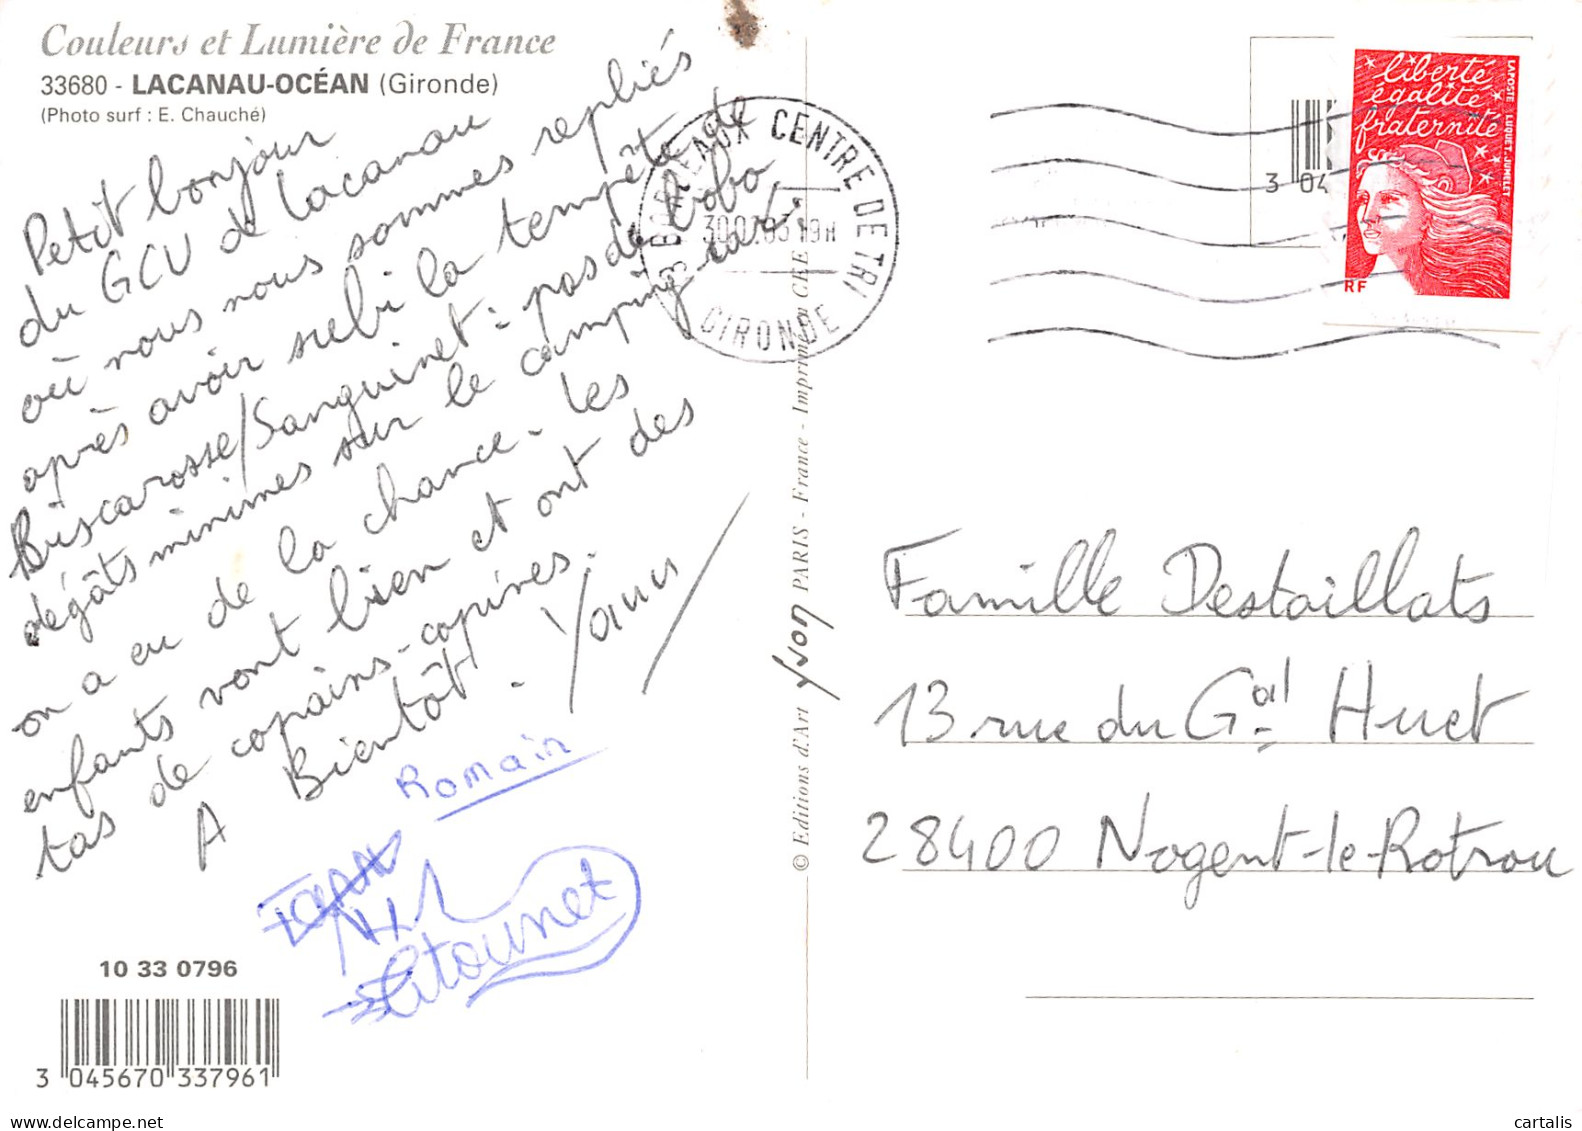 Couleurs et Lumière de France
33680 - LACANAU-OCÉAN (Gironde)
(Photo surf : E. Chauché)
Petit bonjour
du GCU de Lacanau
où nous nous sommes repliés
après avoir subi la tempête de
Biscarosse/Sanguinet : pas de bobo
dégâts minimes sur le camping car.
on a eu de la chance - les
enfants vont bien et ont des
tas de copains-copines.
A Bientôt. Yann
Romain
titounet
10 33 0796
3 045670 337961
© Editions d'Art yvon PARIS - France - Imprimé en CEE
BORDEAUX CENTRE DE TRI
19H
GIRONDE
3 04
liberté
égalité
fraternité
RF
LAPOSTE LUQUET.JUMELET
Famille Destaillats
13 rue du Gal Huet
28400 Nogent-le-Rotrou
cartalis